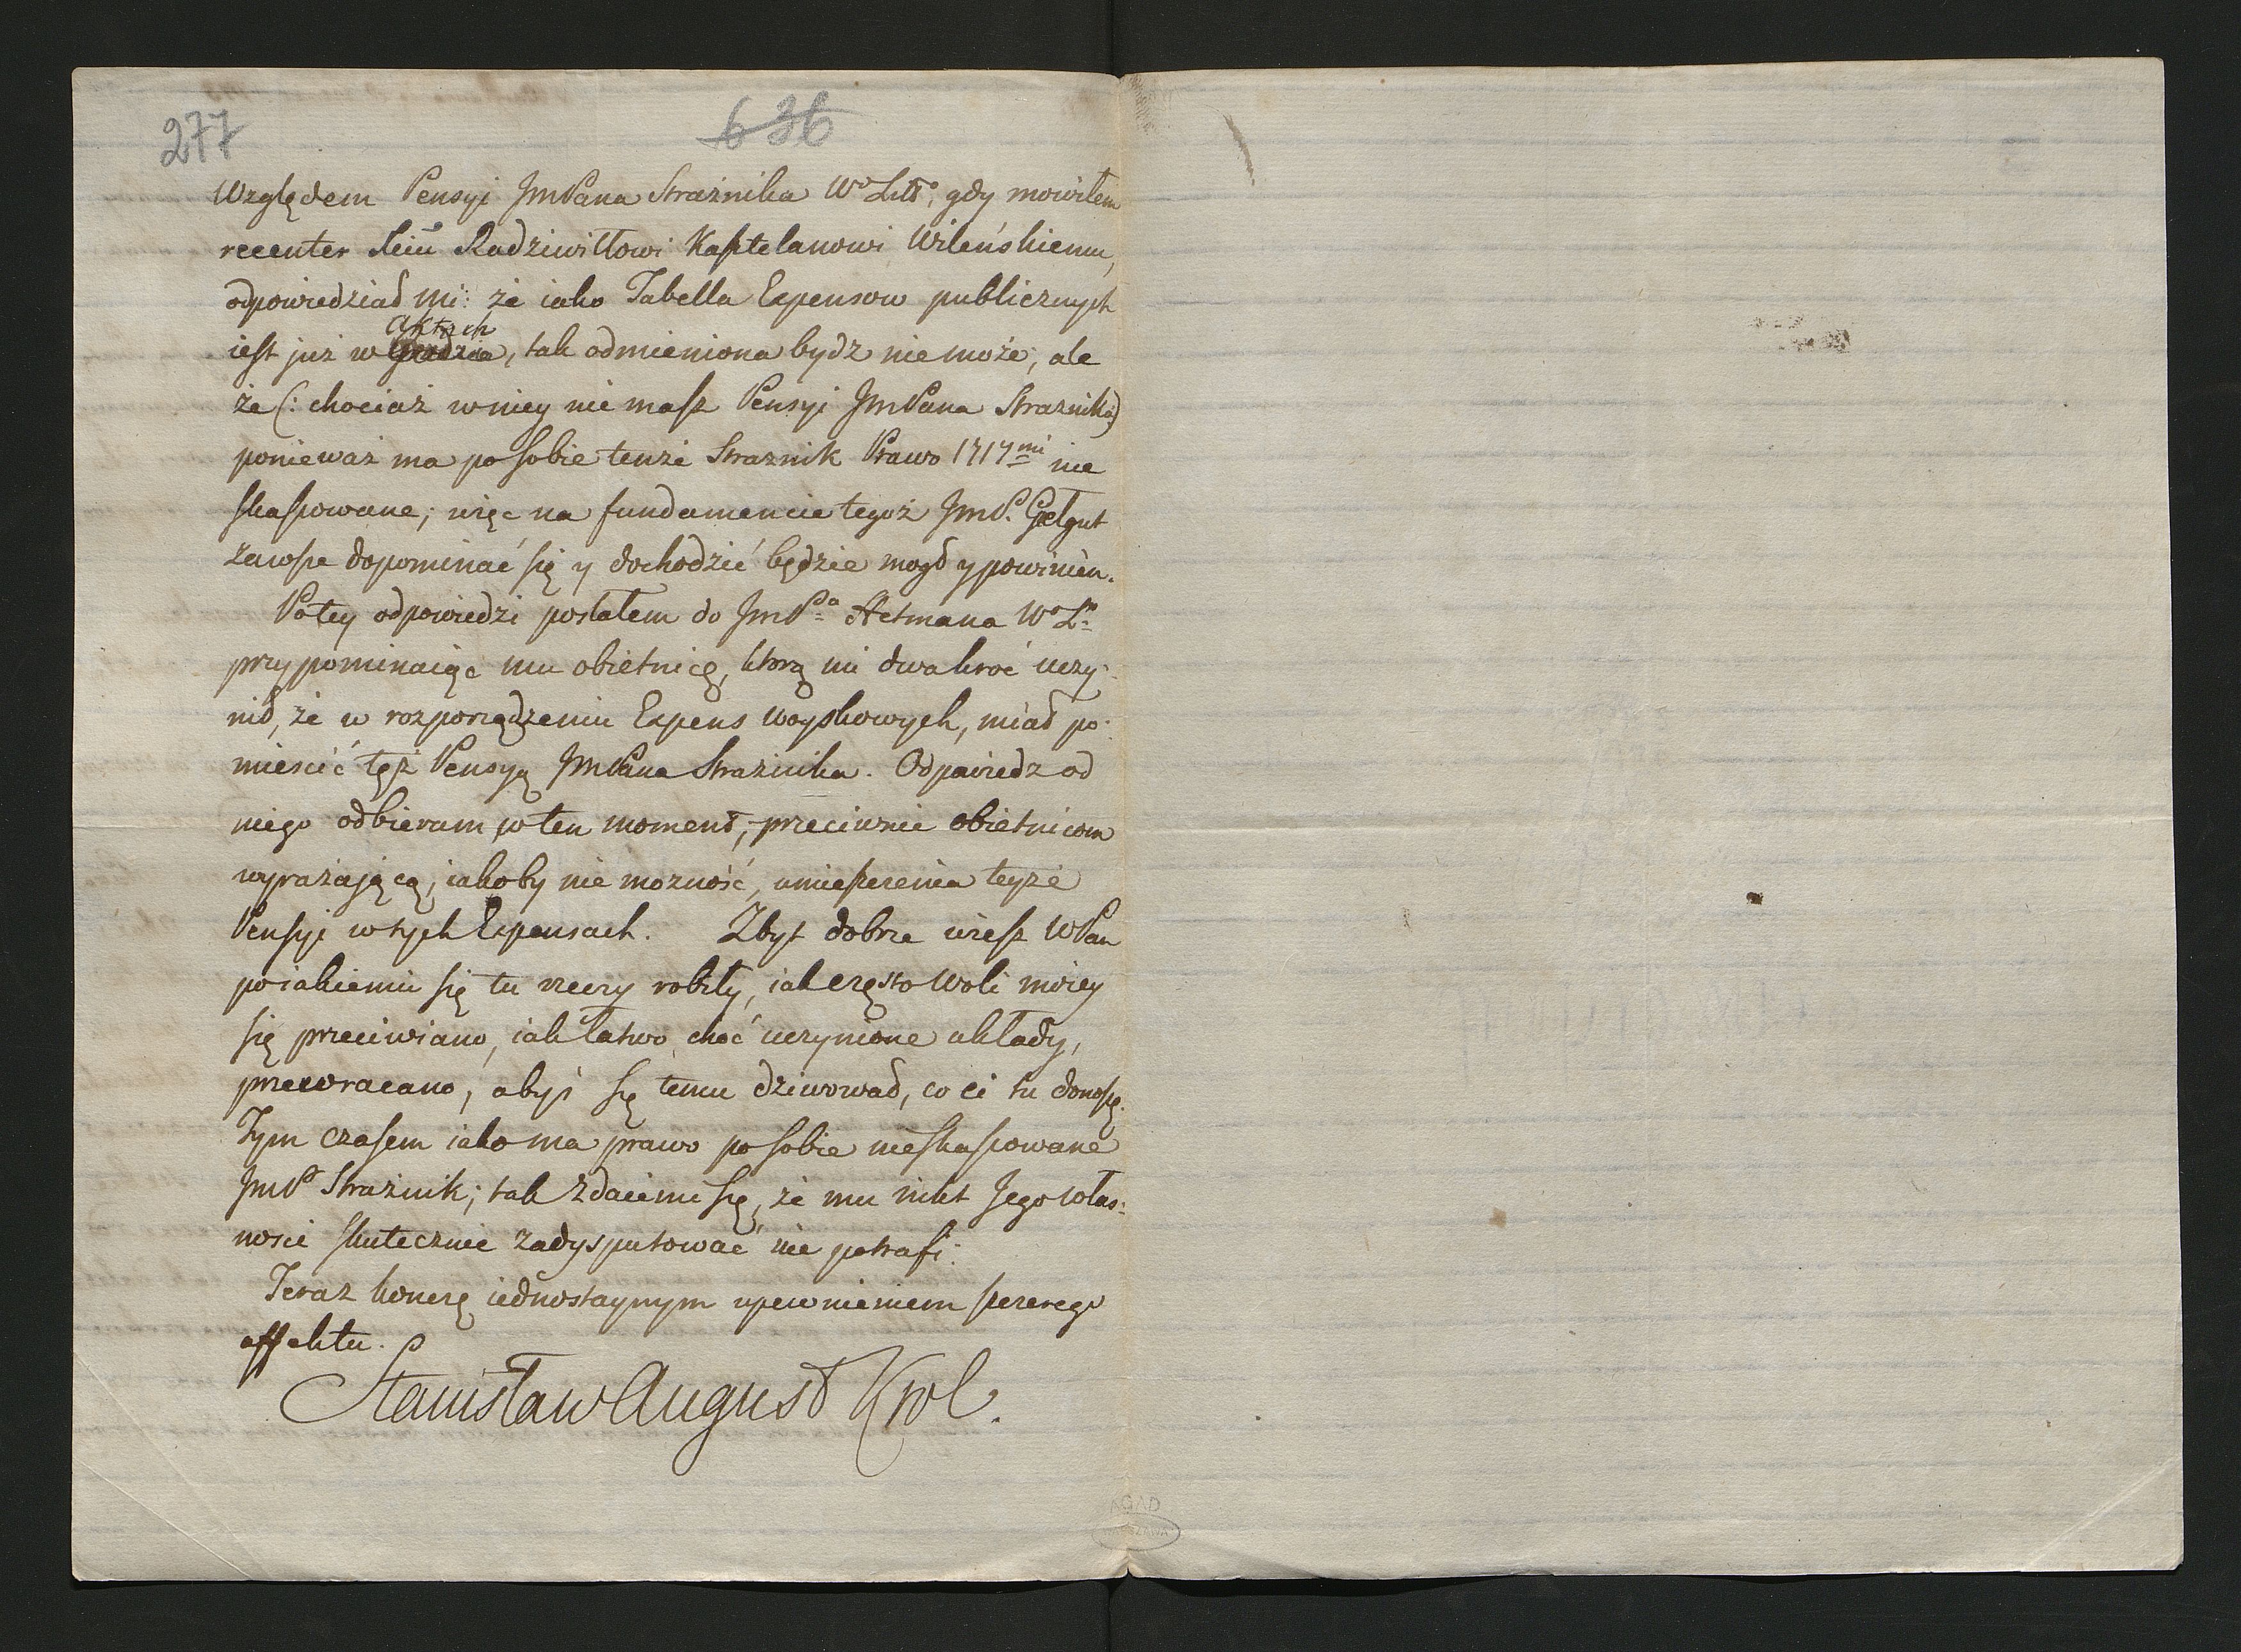 277
636
Względem Pensyi JmPana Strażnika Wo Litto, gdy mowiłem
recenter Xciu Radziwiłłowi Kasztelanowi Wileńskiemu,
odpowiedział mi: że iako Tabella Expensow publicznych
Aktach
iest już w, tak odmieniona bydz nie może, ale
że (: chociaż w niey nie masz Pensyi JmPana Strażnika)
ponieważ ma po sobie tenże Straznik Prawo 1717mi nie
skassowane; więc na fundamencie tegoż JmP. Giełgut
zawsze dopominać się y dochodzić będzie mogł y powinien.
Po tey odpowiedzi posłałem do JmPa Hetmana Wo Lo
przypominaiąc mu obietnicę, ktorą mi dwakroć uczy-
nił, że w rozporządzeniu Expens woyskowych, miał po-
mieścić tęż Pensyą JmPana Strażnika. Odpowiedz od
niego odbieram w ten moment, przeciwnie obietnicom
wyrażającą, iakoby nie mozność umieszczenia teyże
Pensyi w tych Expensach. Zbyt dobrze wiesz WPan
po iakiemu się tu rzeczy robiły, iak często woli moiey
się przeciwiano, iak łatwo choć uczynione układy,
przewracano, abyś się temu dziwował, co ci tu donoszę.
Tym czasem iako ma prawo po sobie nieskassowane
JmP Strażnik; tak zdaie mi się, że mu nikt Jego włas:
ności skutecznie zadysputować nie potrafi.
Teraz konczę iednostaynym upewnieniem szczerego
affektu.
Stanisław August Krol.
AGAD
WARSZAWA